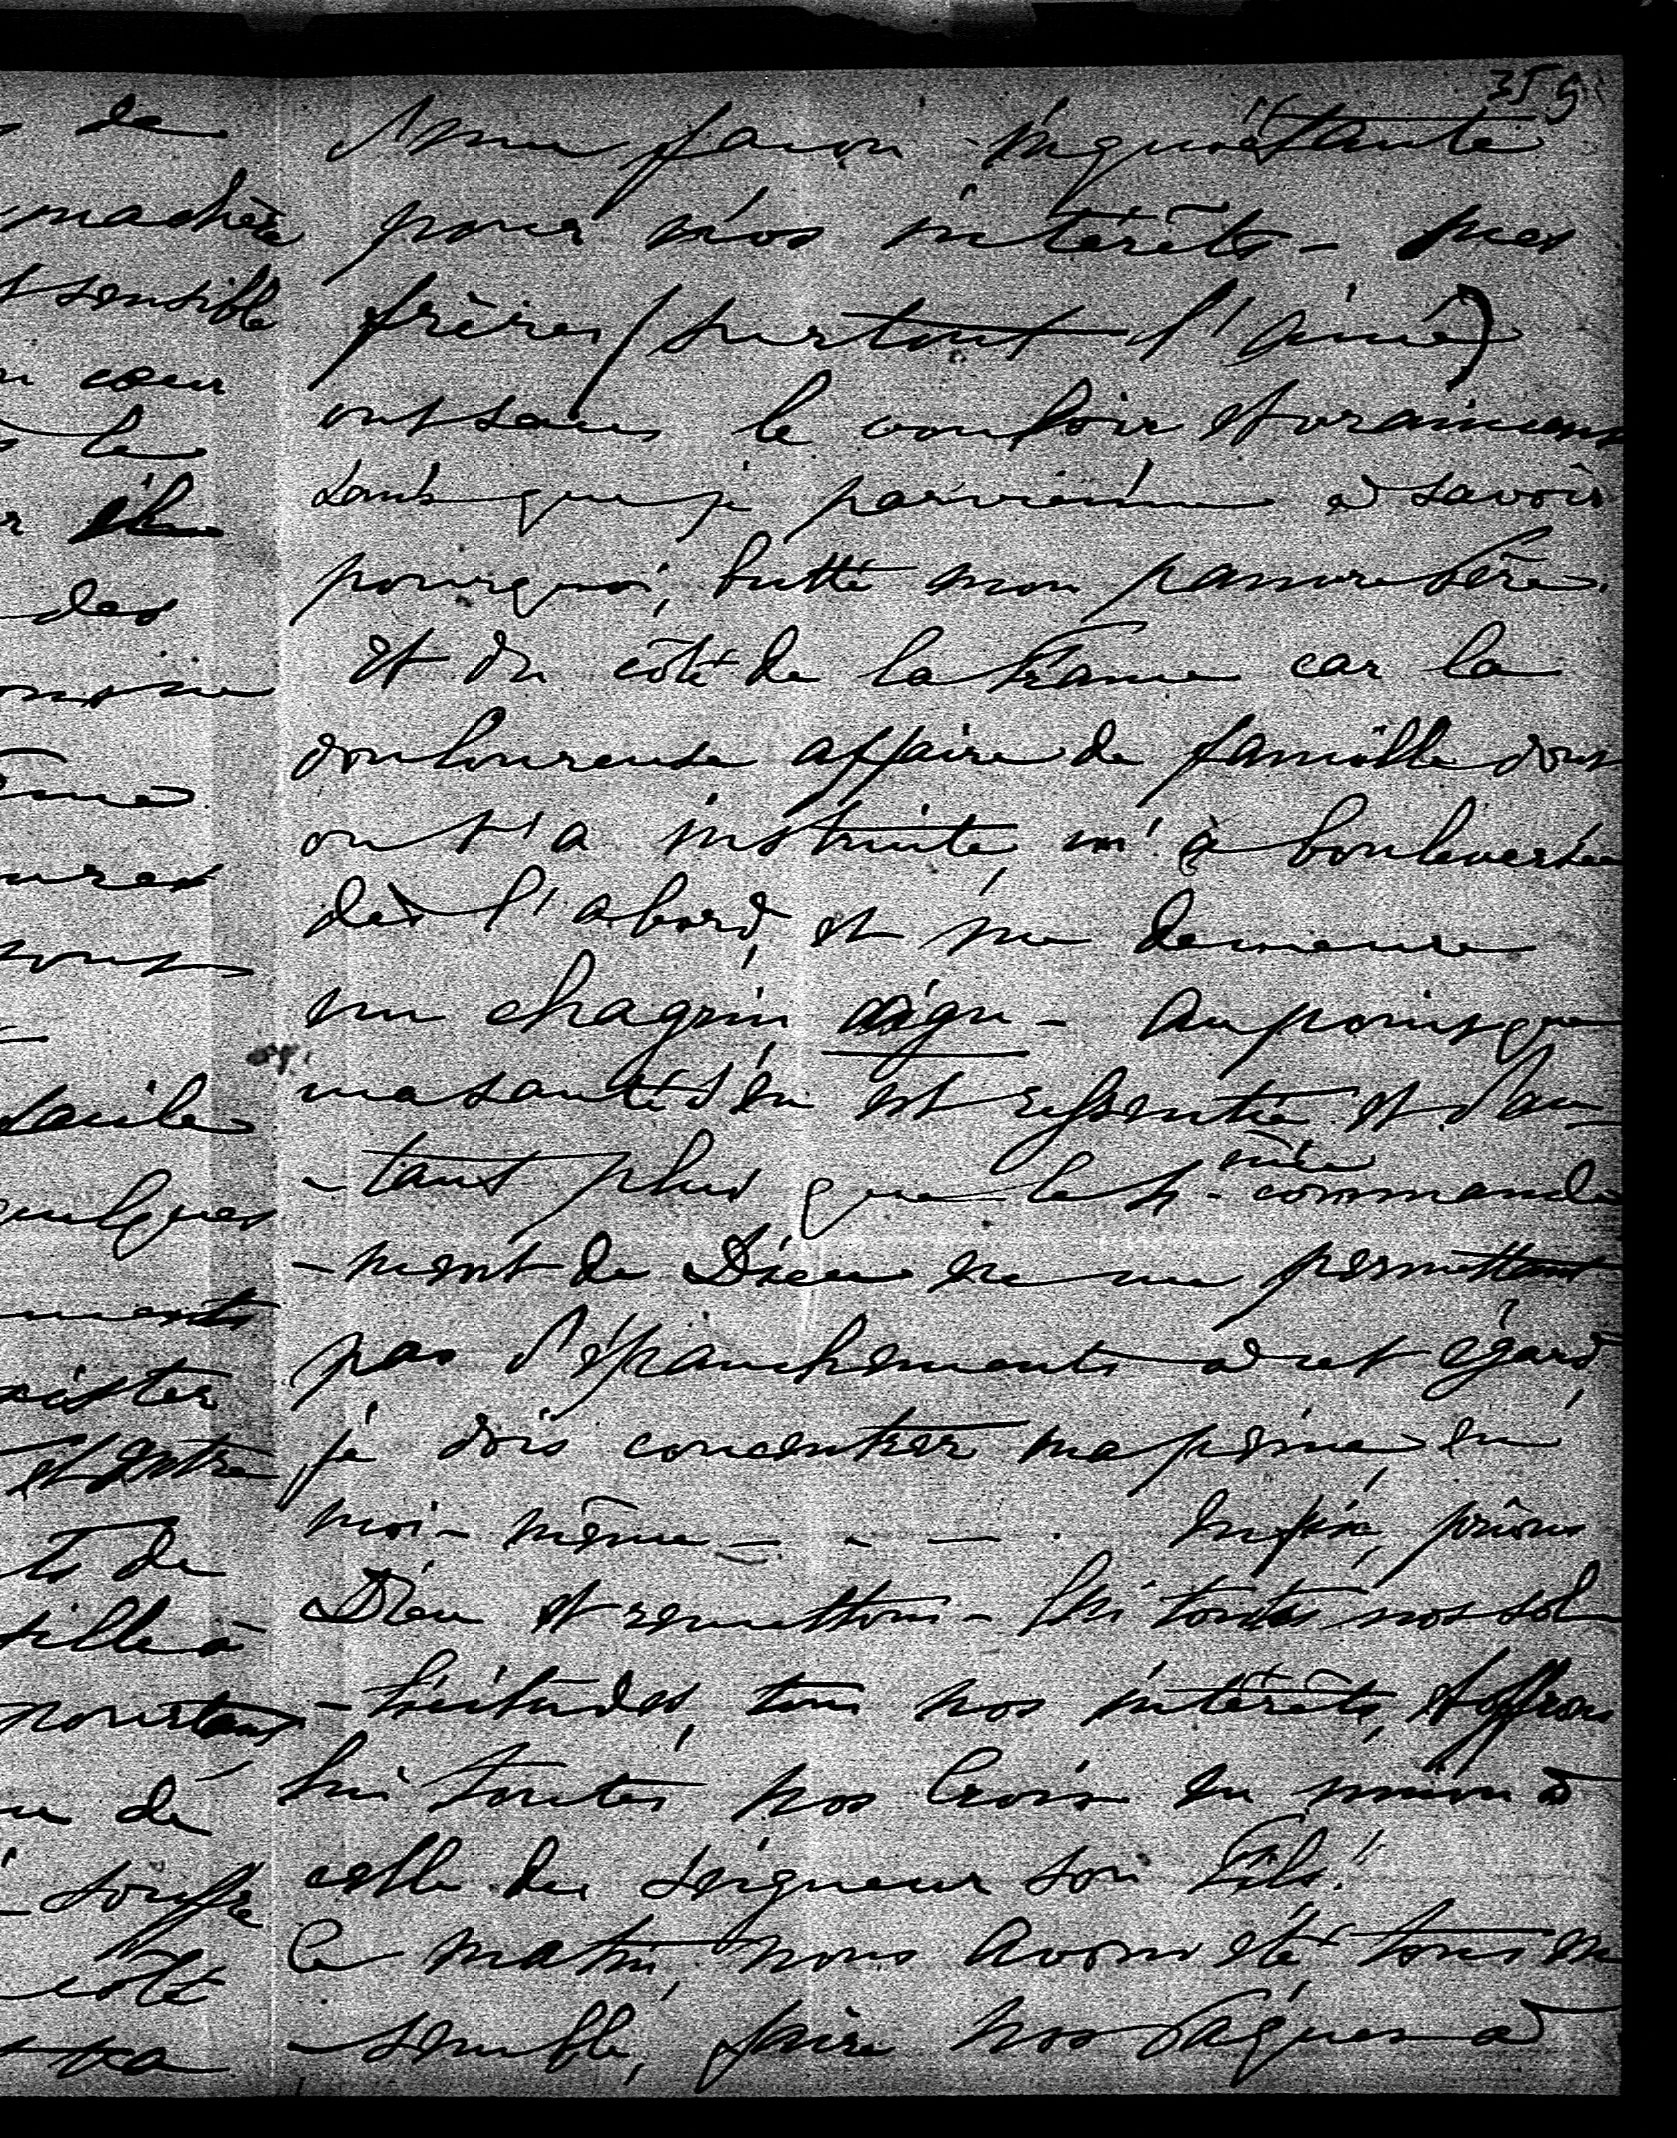 359
d'une façon inquiétante
pour nos intérêts - mes
frères (surtout l'aîné)
ont sans le vouloir et vraiment
sans que je parvienne à savoir
pourquoi, butté mon pauvre Père.
Et du côté de la France car la
douloureuse affaire de famille dont
on t'a instruite m'a bouleversée
dès l'abord, et me demeure
un chagrin aigu - Au point que
ma santé s'en est ressentie et d'au
-tant plus que le 4ème commande
-ment de Dieu ne me permettant
pas d'épanchements à cet égard
je dois concentrer ma peine en
moi-même - . - . Enfin, prions
Dieu et remettons-lui toutes nos sol
-licitudes, tous nos intérêts, et offrons
lui toutes nos Croix en union à
celle du Seigneur son Fils!
Ce matin, nous avons été tous en
-semble, faire nos Pâques à
de
ma chère
sensible
cœur
le
des
quelques
et entre
de
pourtant
de
souffre
côté